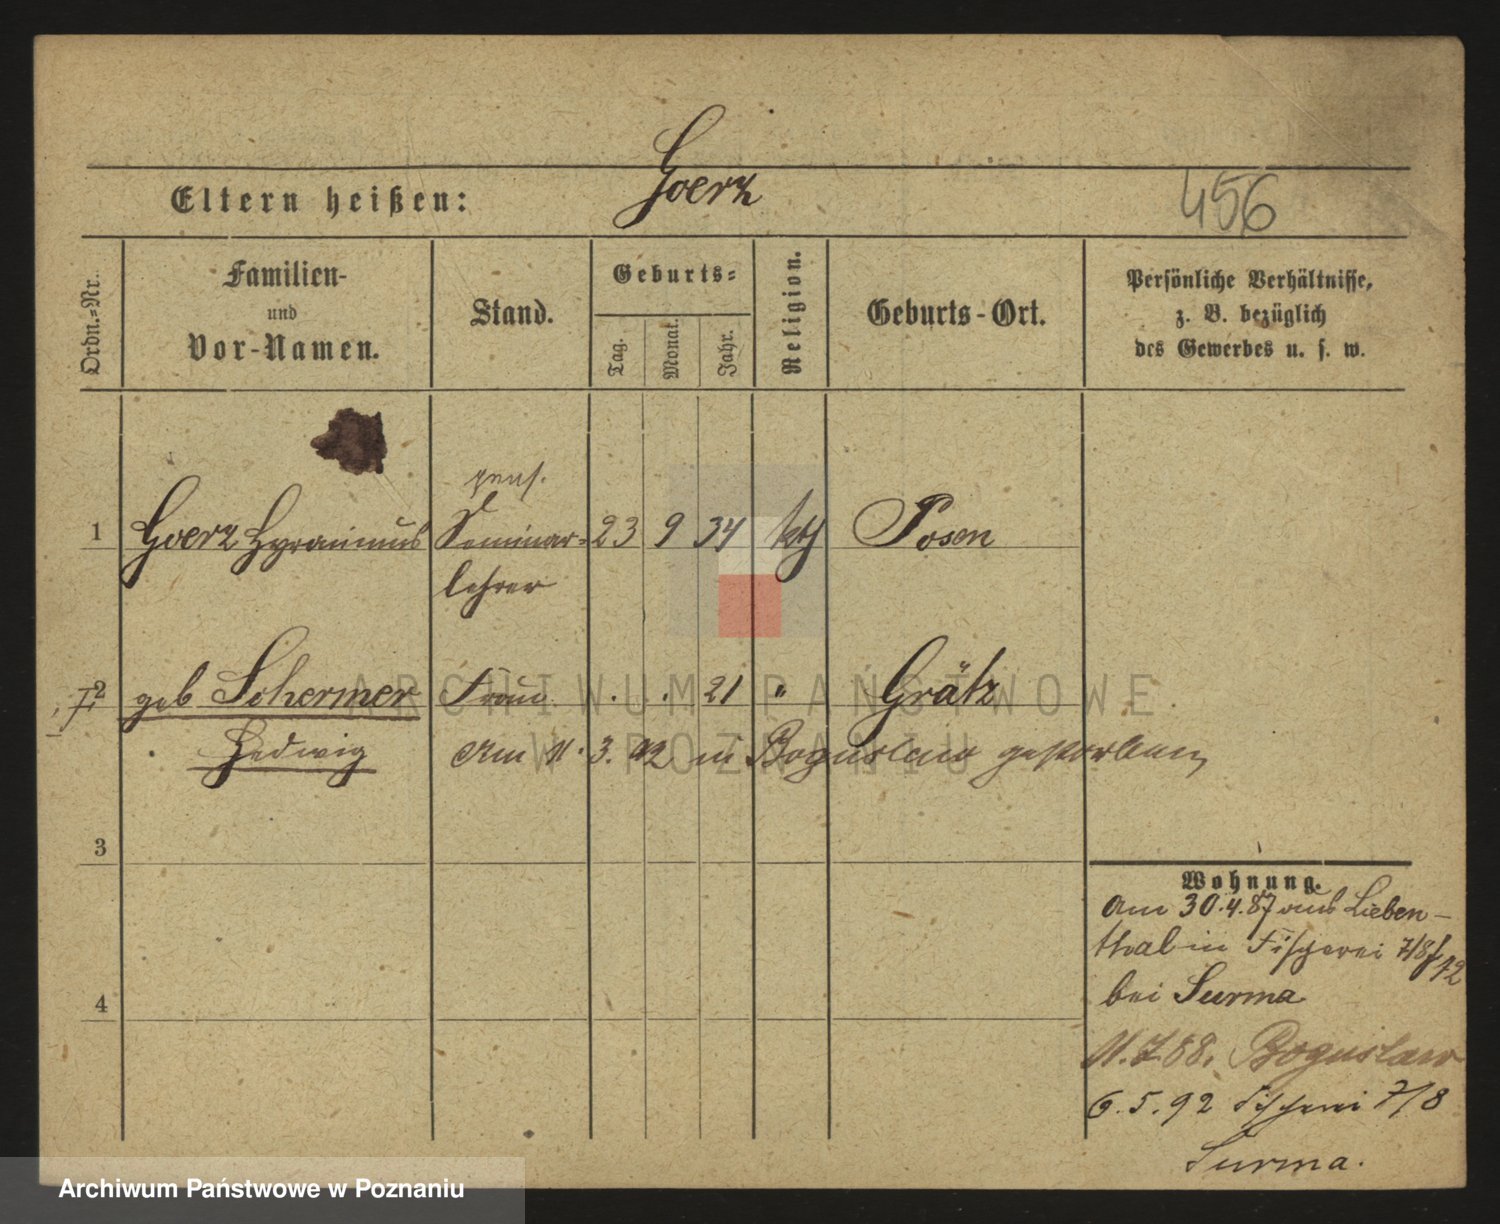 Goerz
Eltern heißen:
456
Ordn.=Nr.
Familien-
und
Vor-Namen.
Stand.
Geburts=
Tag.
Monat.
Jahr.
Religion.
Geburts-Ort.
Persönliche Verhältnisse,
z. B. bezüglich
des Gewerbes u. s. w.
pens.
1 Goerz Hyronimus Seminar= 23 9 34 kth Posen
lehrer
2 geb Schermer Frau . . 21 " Grätz
Hedwig Am 11. 3. 92 in Boguslaw gestorben
3
4
Wohnung.
Am 30.4.87 aus Lieben-
thal in Fischerei 7/8
bei Surma
11.7.88. Boguslaw
6.5.92 Fischerei 7/8
Surma.
ARCHIWUM PAŃSTWOWE
W POZNANIU
Archiwum Państwowe w Poznaniu